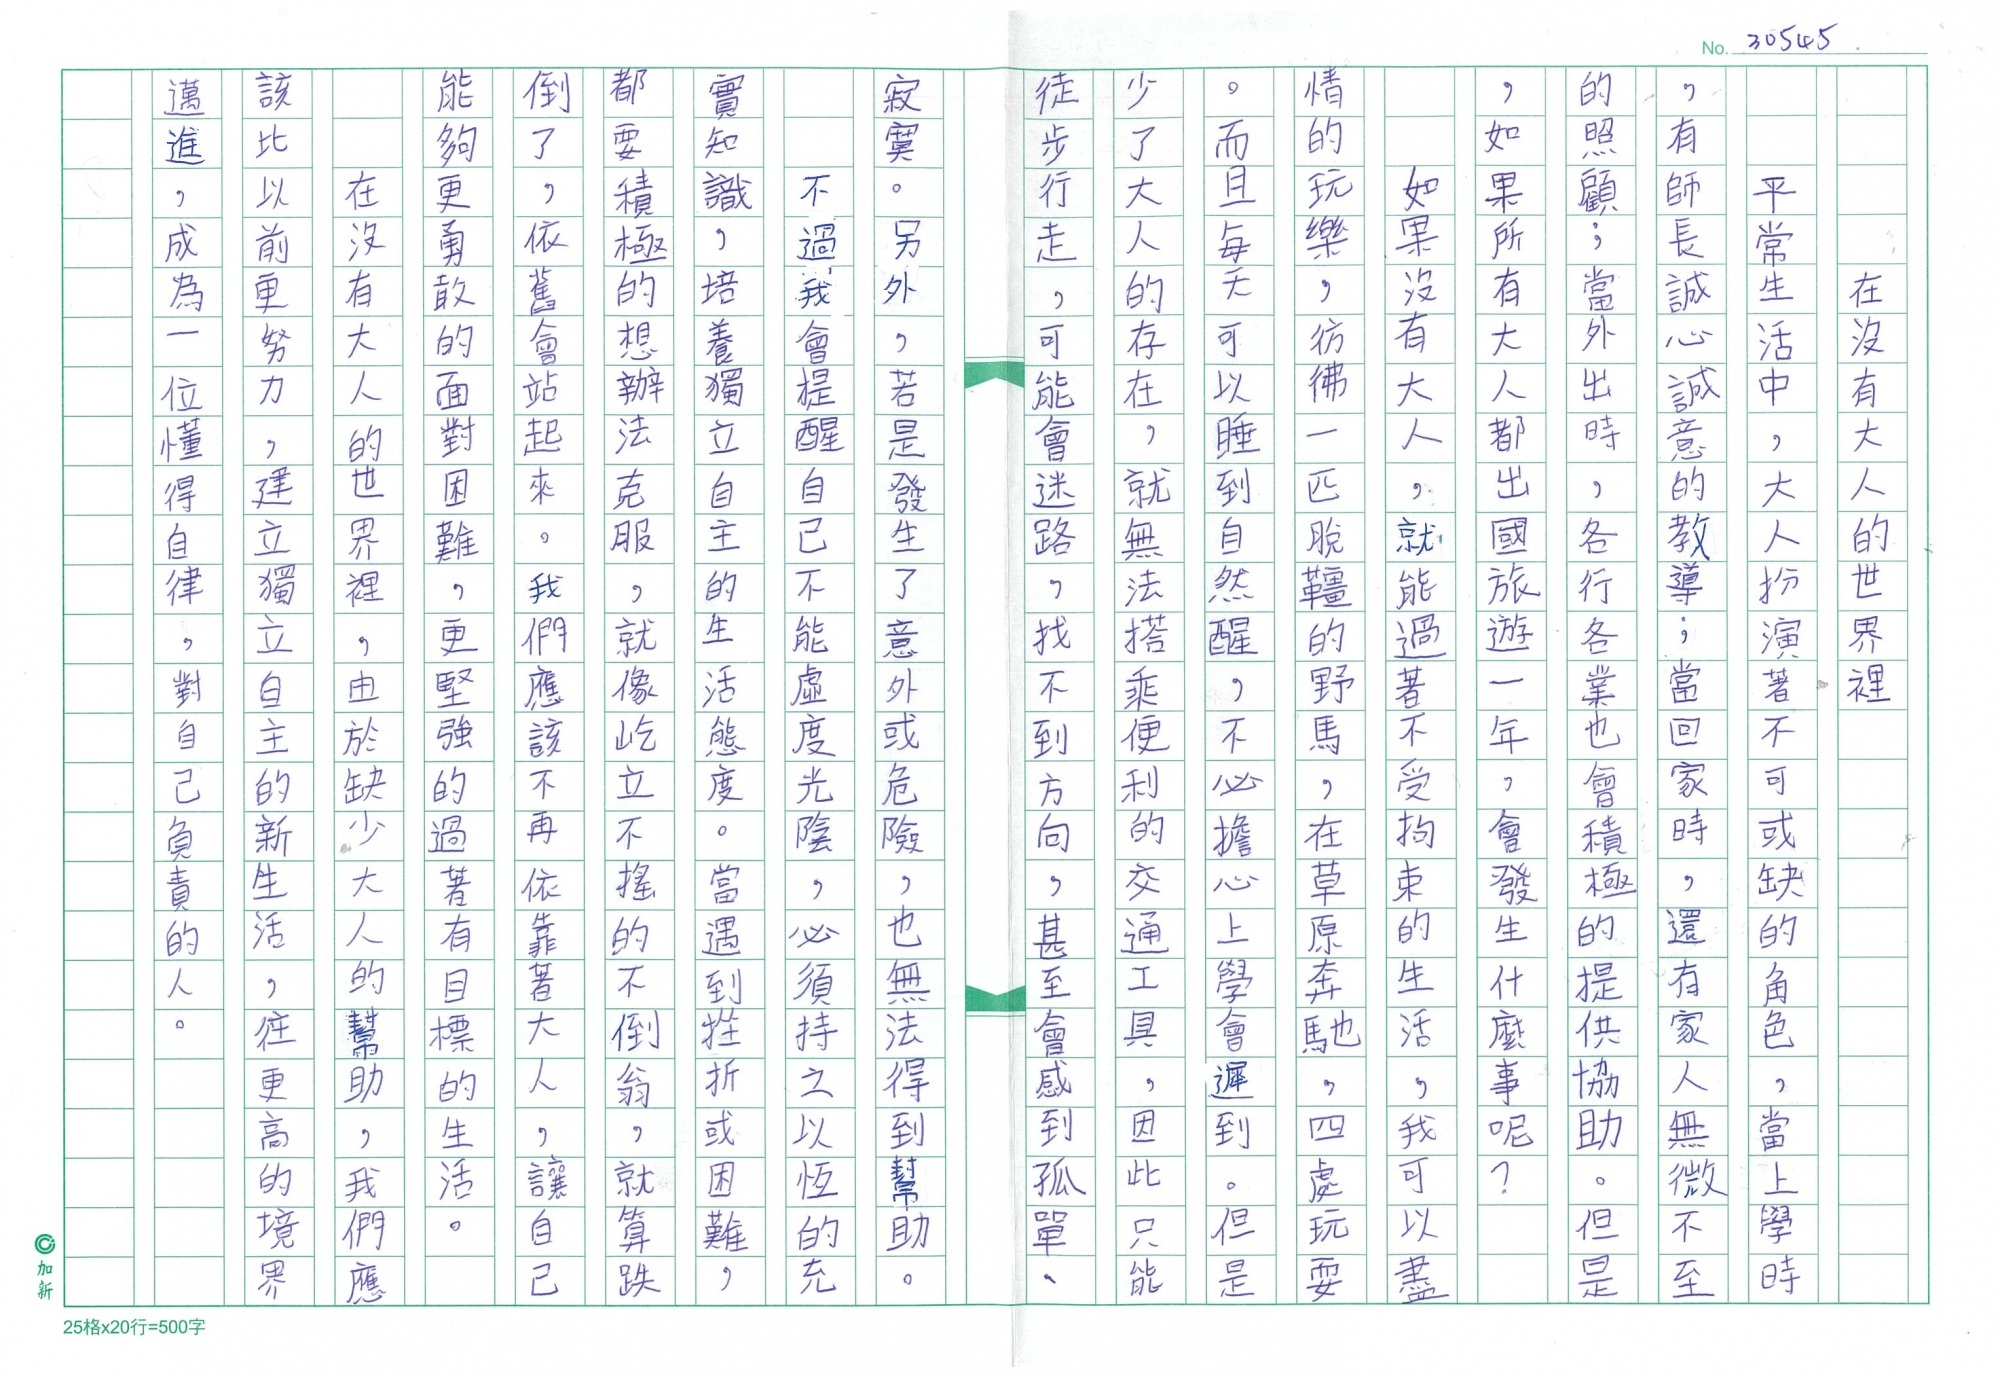 No. 30545
在沒有大人的世界裡
平常生活中，大人扮演著不可或缺的角色，當上學時
，有師長誠心誠意的教導；當回家時，還有家人無微不至
的照顧；當外出時，各行各業也會積極的提供協助。但是
，如果所有大人都出國旅遊一年，會發生什麼事呢？
如果沒有大人，就能過著不受拘束的生活，我可以盡
情的玩樂，彷彿一匹脫韁的野馬，在草原奔馳，四處玩耍
。而且每天可以睡到自然醒，不必擔心上學會遲到。但是
少了大人的存在，就無法搭乘便利的交通工具，因此只能
徒步行走，可能會迷路，找不到方向，甚至會感到孤單、
寂寞。另外，若是發生了意外或危險，也無法得到幫助。
不過我會提醒自己不能虛度光陰，必須持之以恆的充
實知識，培養獨立自主的生活態度。當遇到挫折或困難，
都要積極的想辦法克服，就像屹立不搖的不倒翁，就算跌
倒了，依舊會站起來。我們應該不再依靠著大人，讓自己
能夠更勇敢的面對困難，更堅強的過著有目標的生活。
在沒有大人的世界裡，由於缺少大人的幫助，我們應
該比以前更努力，建立獨立自主的新生活，往更高的境界
邁進，成為一位懂得自律，對自己負責的人。
加新
25格x20行=500字